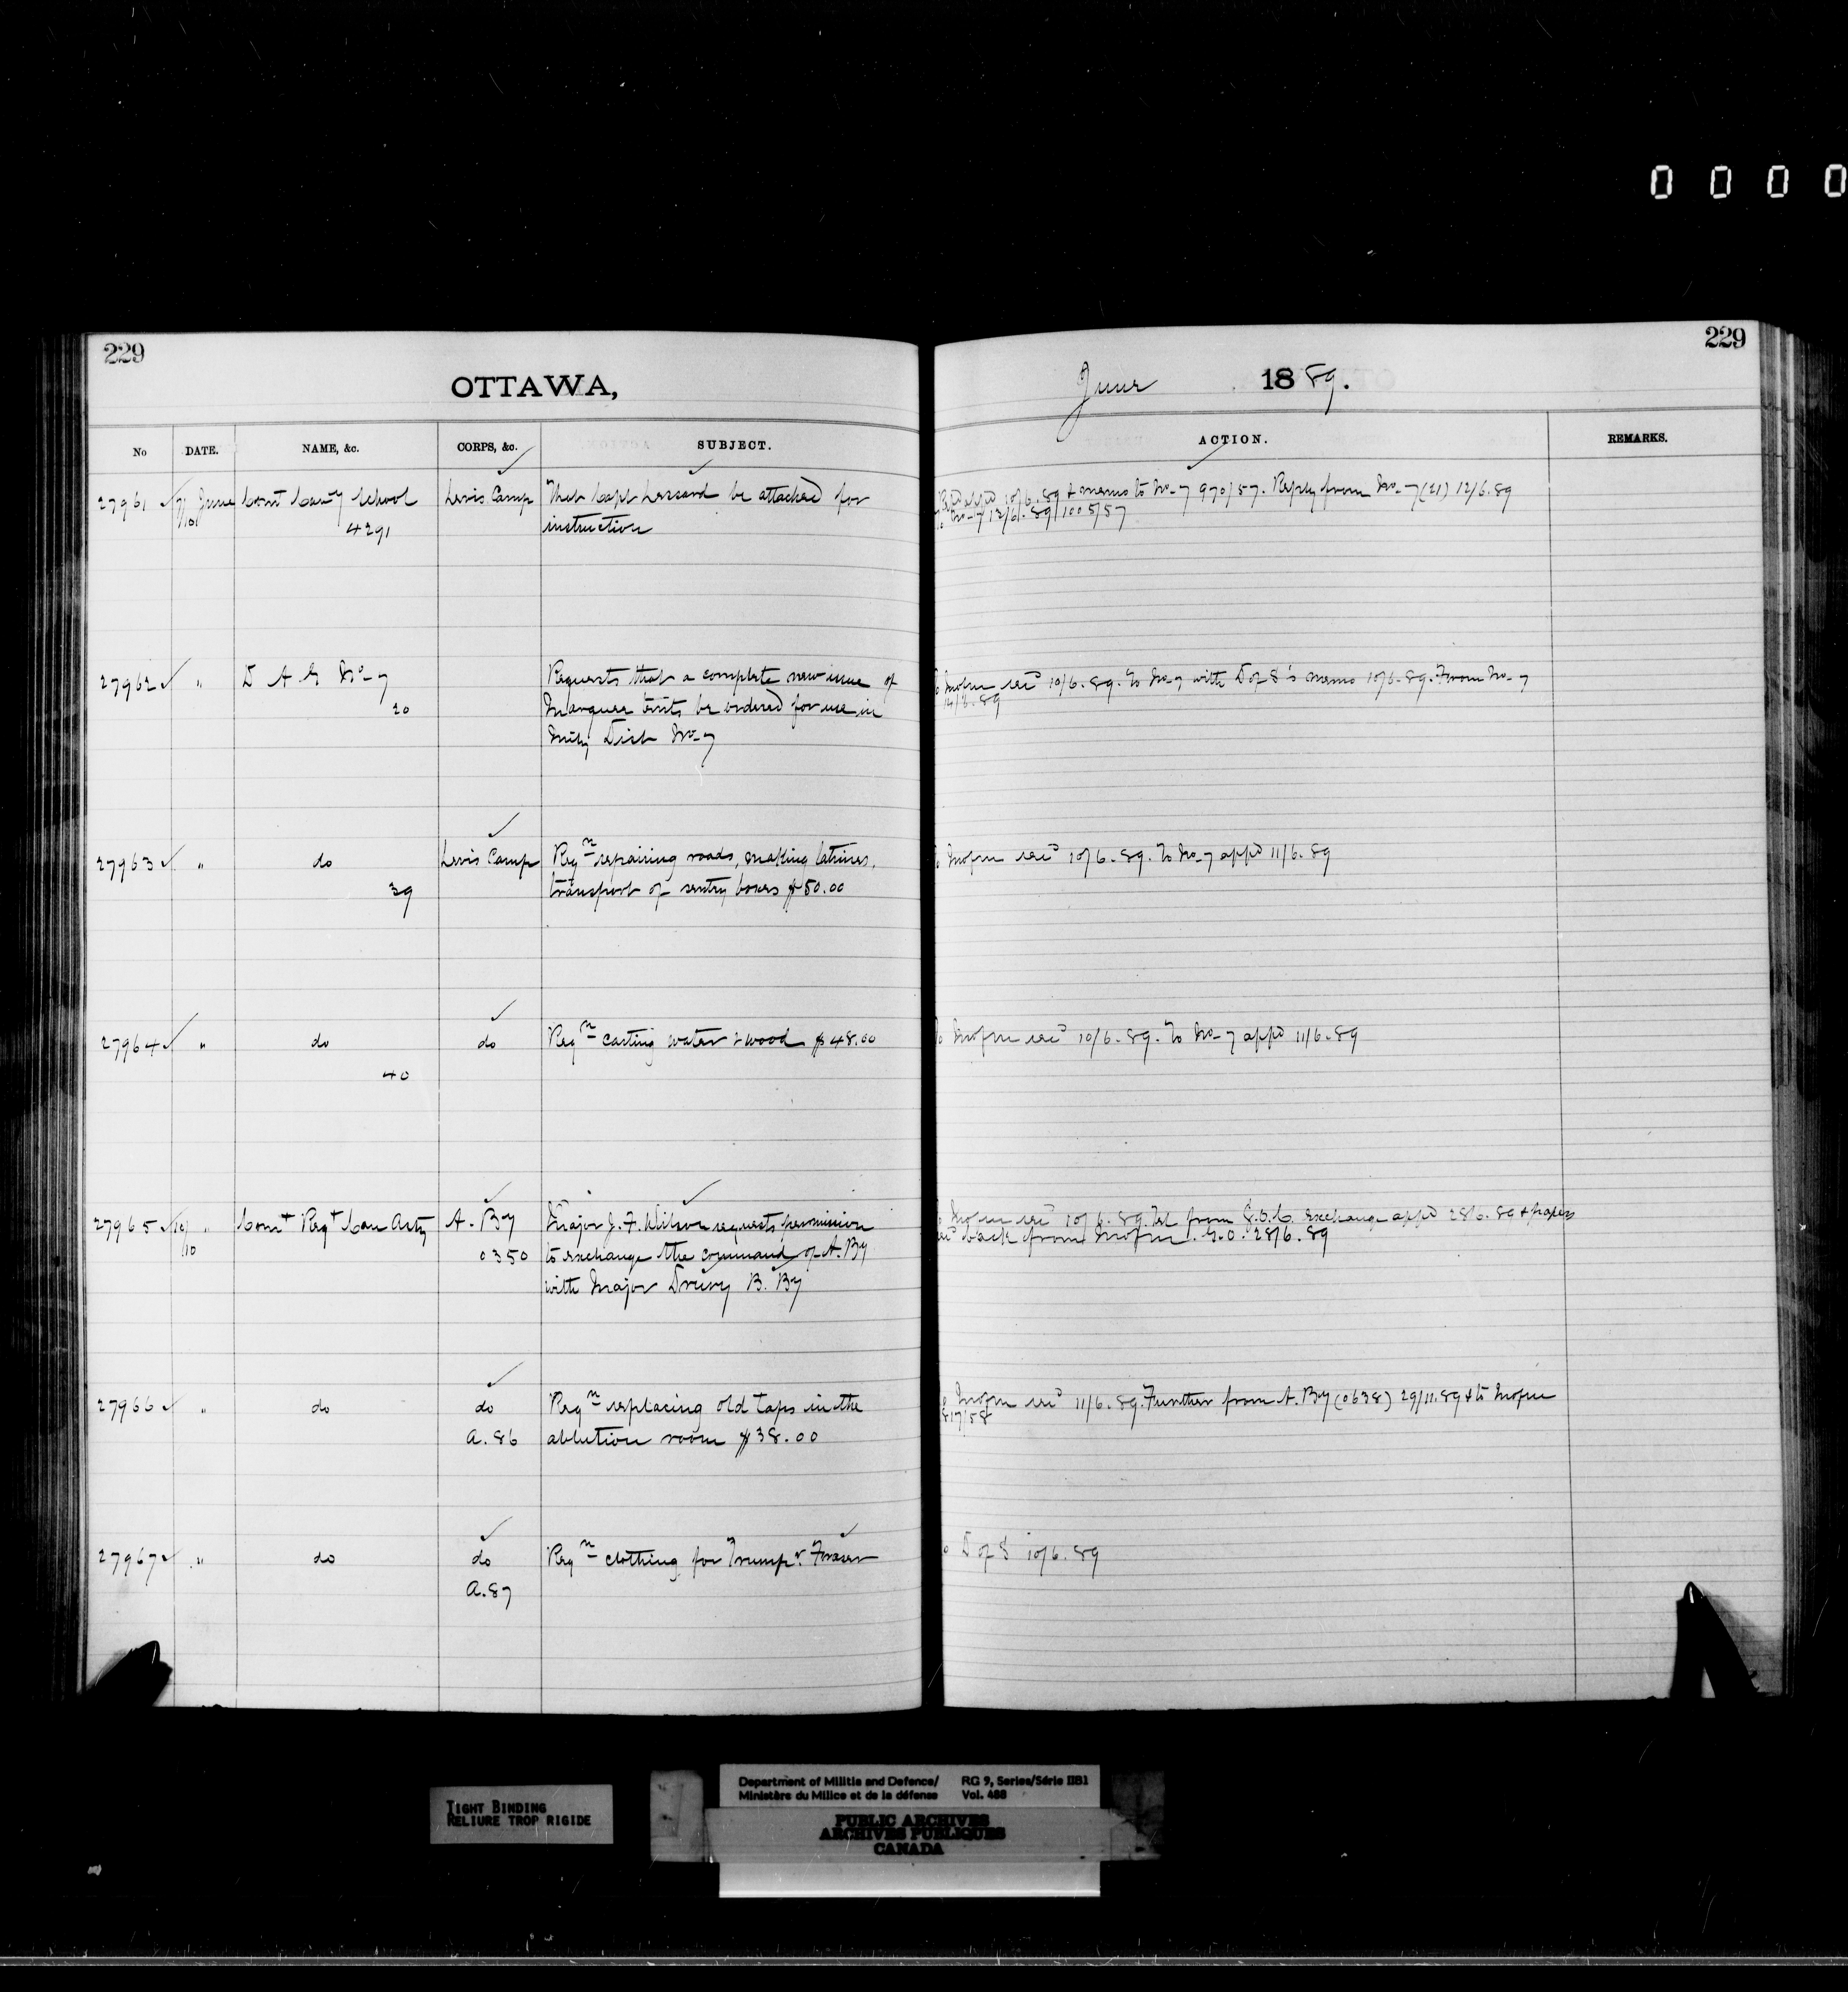 0 0 0 0
229
229
OTTAWA,
June 1889.
No DATE. NAME, &c. CORPS, &c. SUBJECT. ACTION. REMARKS.
27961 7/10 June Comt Cavy School Levis Camp That Capt Lessard be attached for
4291 instruction
appd 10/6.89 & memo to No-7 970/57. Reply from No-7 (21) 12/6.89
To No-7 12/6.89 1005/57
27962 " D A G No-7 Requests that a complete new issue of
20 Marquee tents be ordered for use in
Mily Dist No-7
rec'd 10/6.89. To No-7 with D of S's memo 10/6.89. From No-7
14/6.89
27963 " do Levis Camp Reqn repairing roads, making latrines,
39 transport of sentry boxes $50.00
rec'd 10/6.89. To No-7 appd 11/6.89
27964 " do do Reqn carting water & wood $48.00
40
rec'd 10/6.89. To No-7 appd 11/6.89
27965 10/10 " Comt Regt Can Arty A. By Major J. F. Wilson requests permission
0350 to exchange the command of A. By
with Major Drury B. By
rec'd 10/6.89. Tel from G.O.C. exchange appd 28/6.89 & papers
rec'd back from G.O. 28/6.89
27966 " do do Reqn replacing old taps in the
A.86 ablution room $38.00
rec'd 11/6.89. Further from A. By (0638) 29/11.89 & to
817/58
27967 " do do Reqn clothing for Trumpr Fraser
A.87
D of S 10/6.89
TIGHT BINDING
RELIURE TROP RIGIDE
Department of Militia and Defence/ RG 9, Series/Série IIB1
Ministère du Milice et de la défense Vol. 488
PUBLIC ARCHIVES
ARCHIVES PUBLIQUES
CANADA